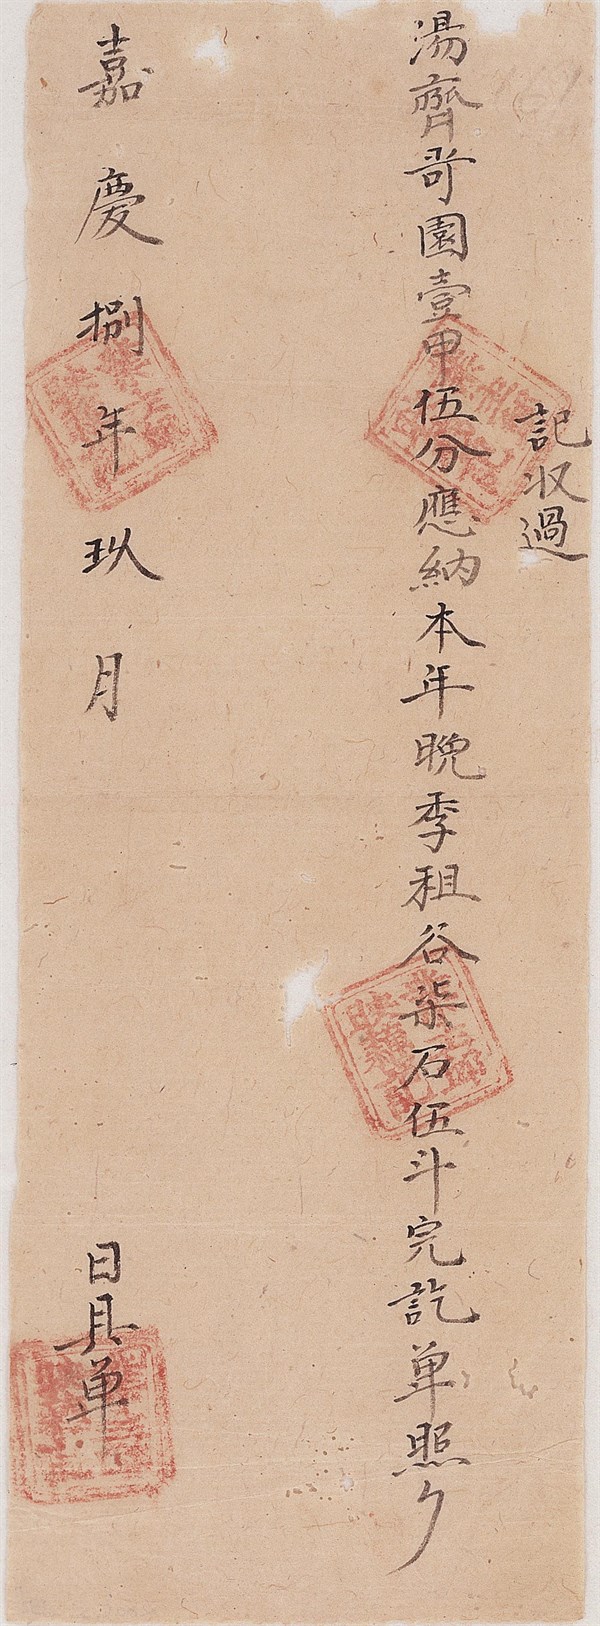 記収過
湯齊哥園壹甲伍分應納本年晚季租谷柒石伍斗完訖单照
嘉慶捌年玖月　日具单